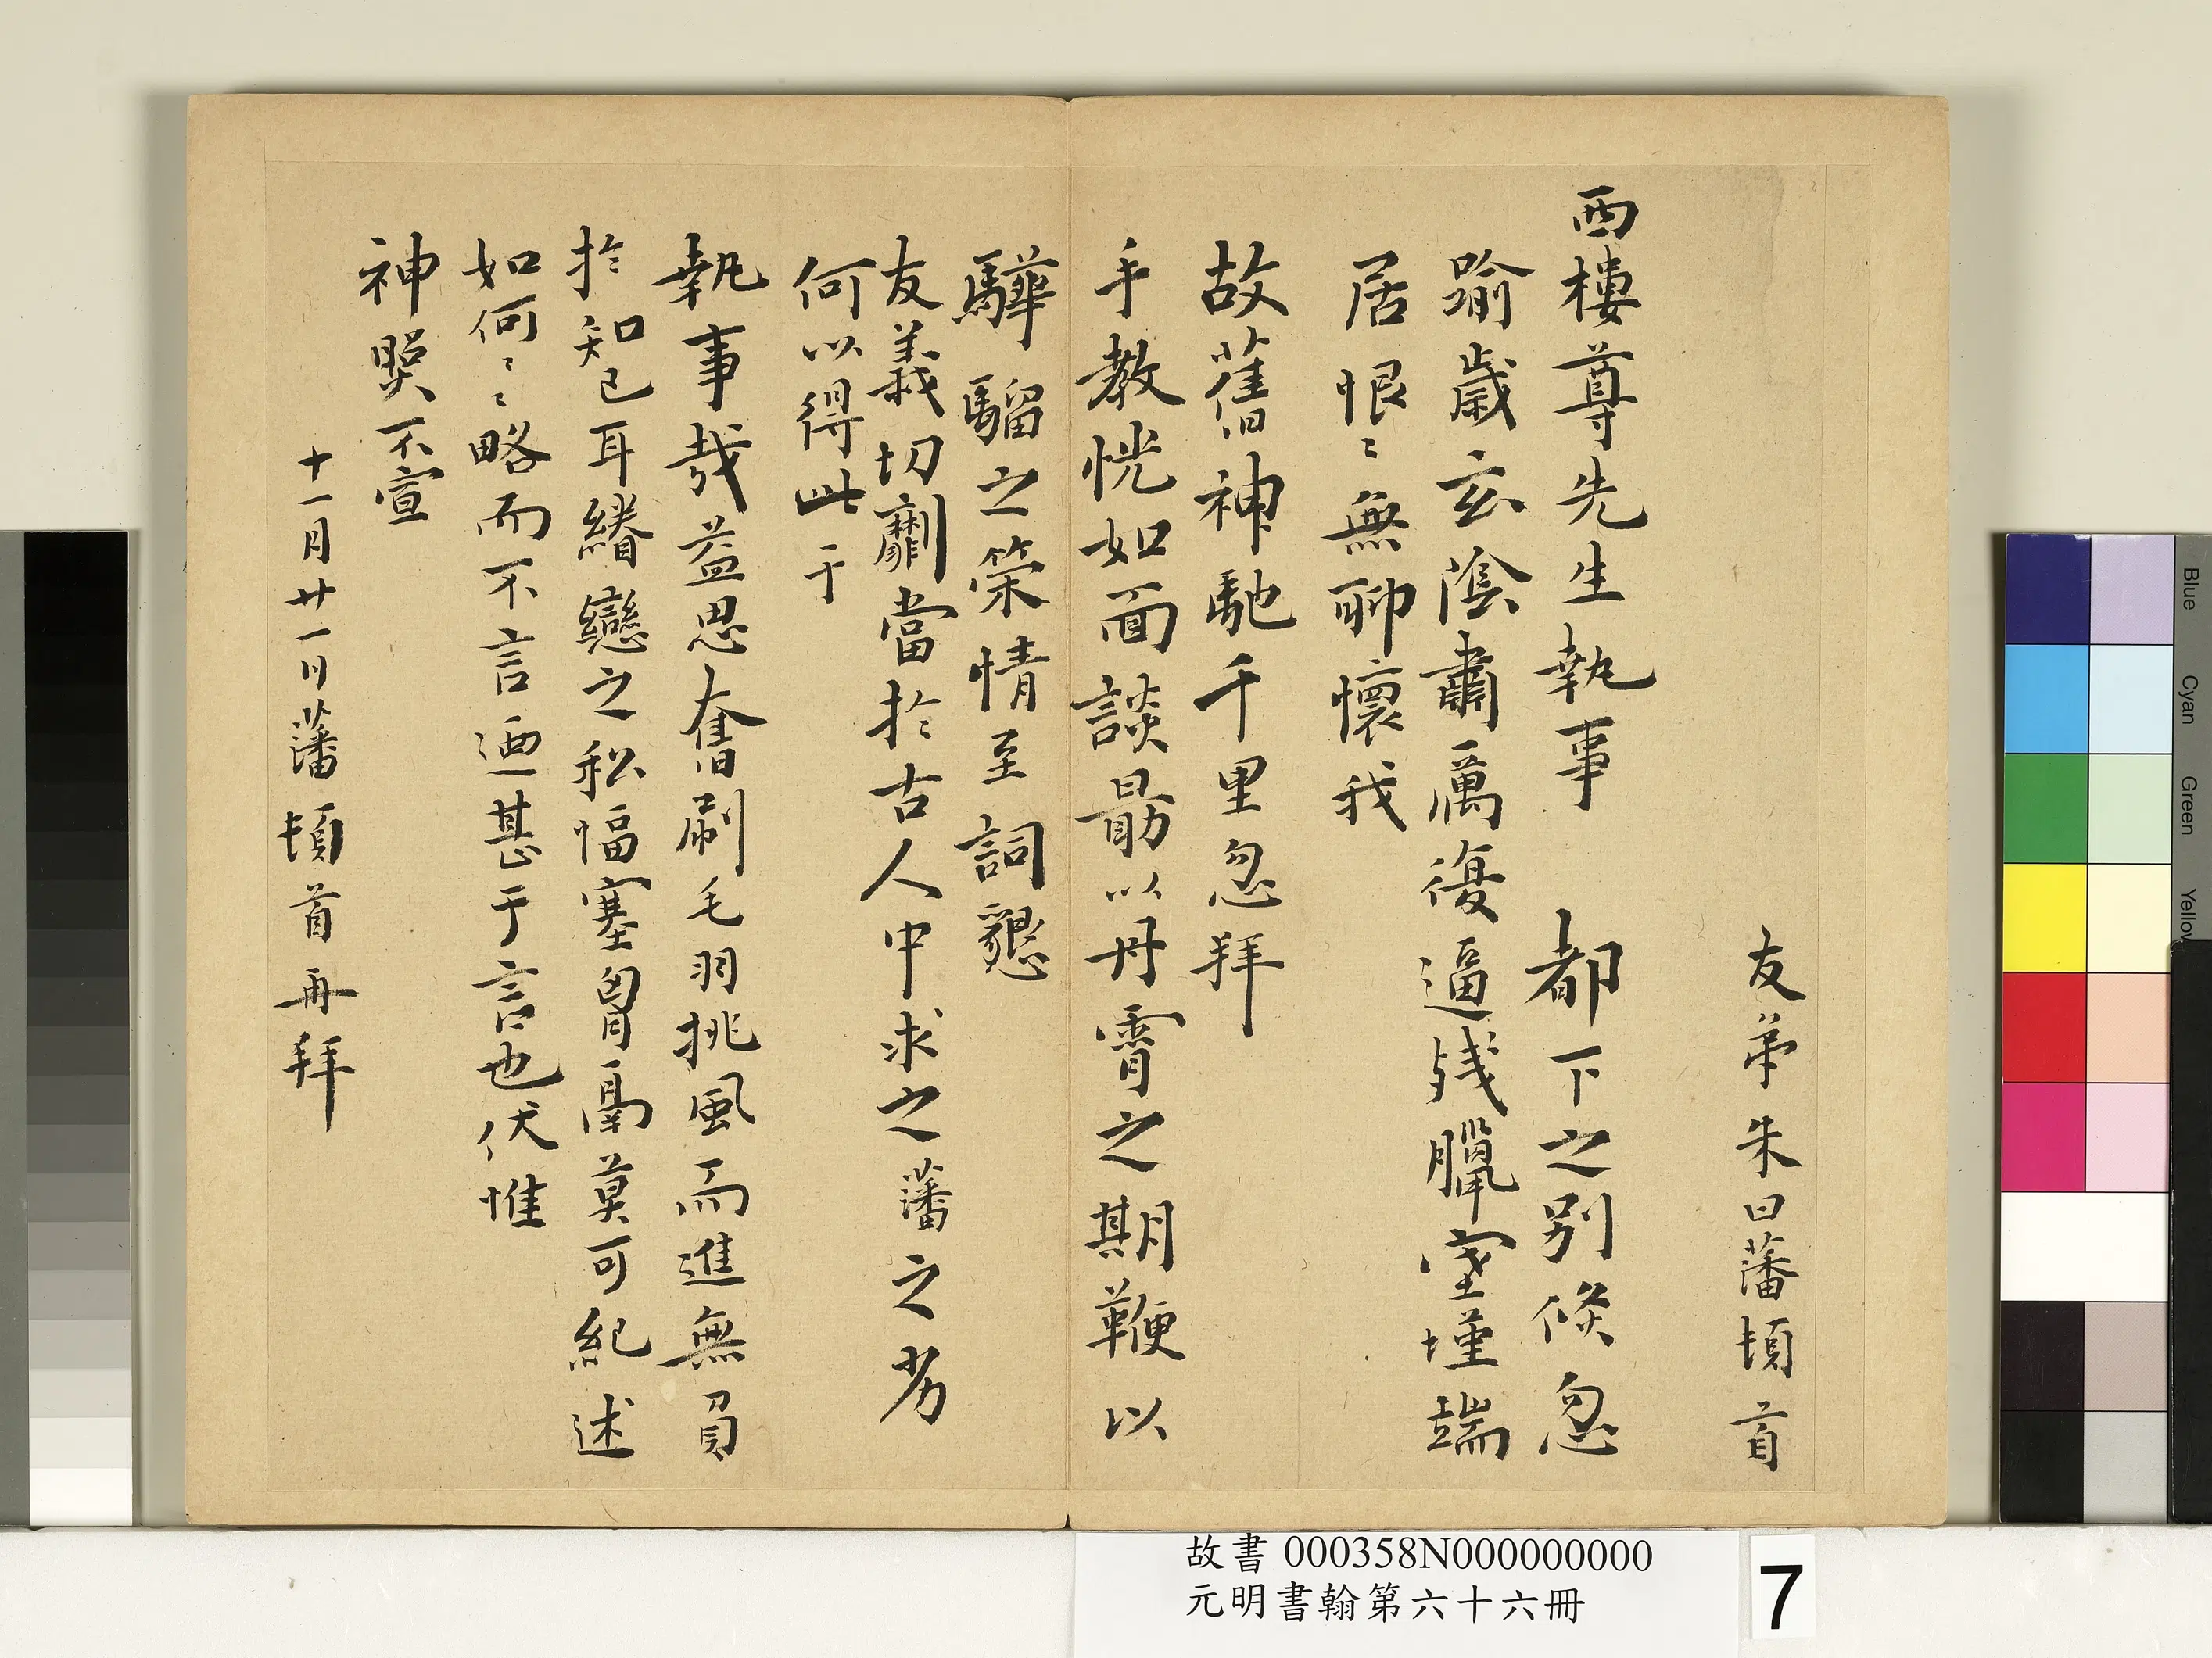 友弟朱曰藩頓首
西樓尊先生執事　都下之別倐忽
踰歲玄陰肅厲復逼殘臘室墐端
居恨〻無聊懷我
故舊神馳千里忽拜
手教恍如面談勗以丹霄之期鞭以
驊騮之策情至詞懇
友義切劘當於古人中求之藩之劣
何以得此于
執事哉益思奮刷毛羽挑風而進無負
於知己耳綣戀之私愊塞胷鬲莫可紀述
如何〻〻略而不言迺甚于言也伏惟
神照不宣
十一月廿一日藩頓首再拜
故書 000358N000000000
元明書翰第六十六冊
7
Blue
Cyan
Green
Yellow